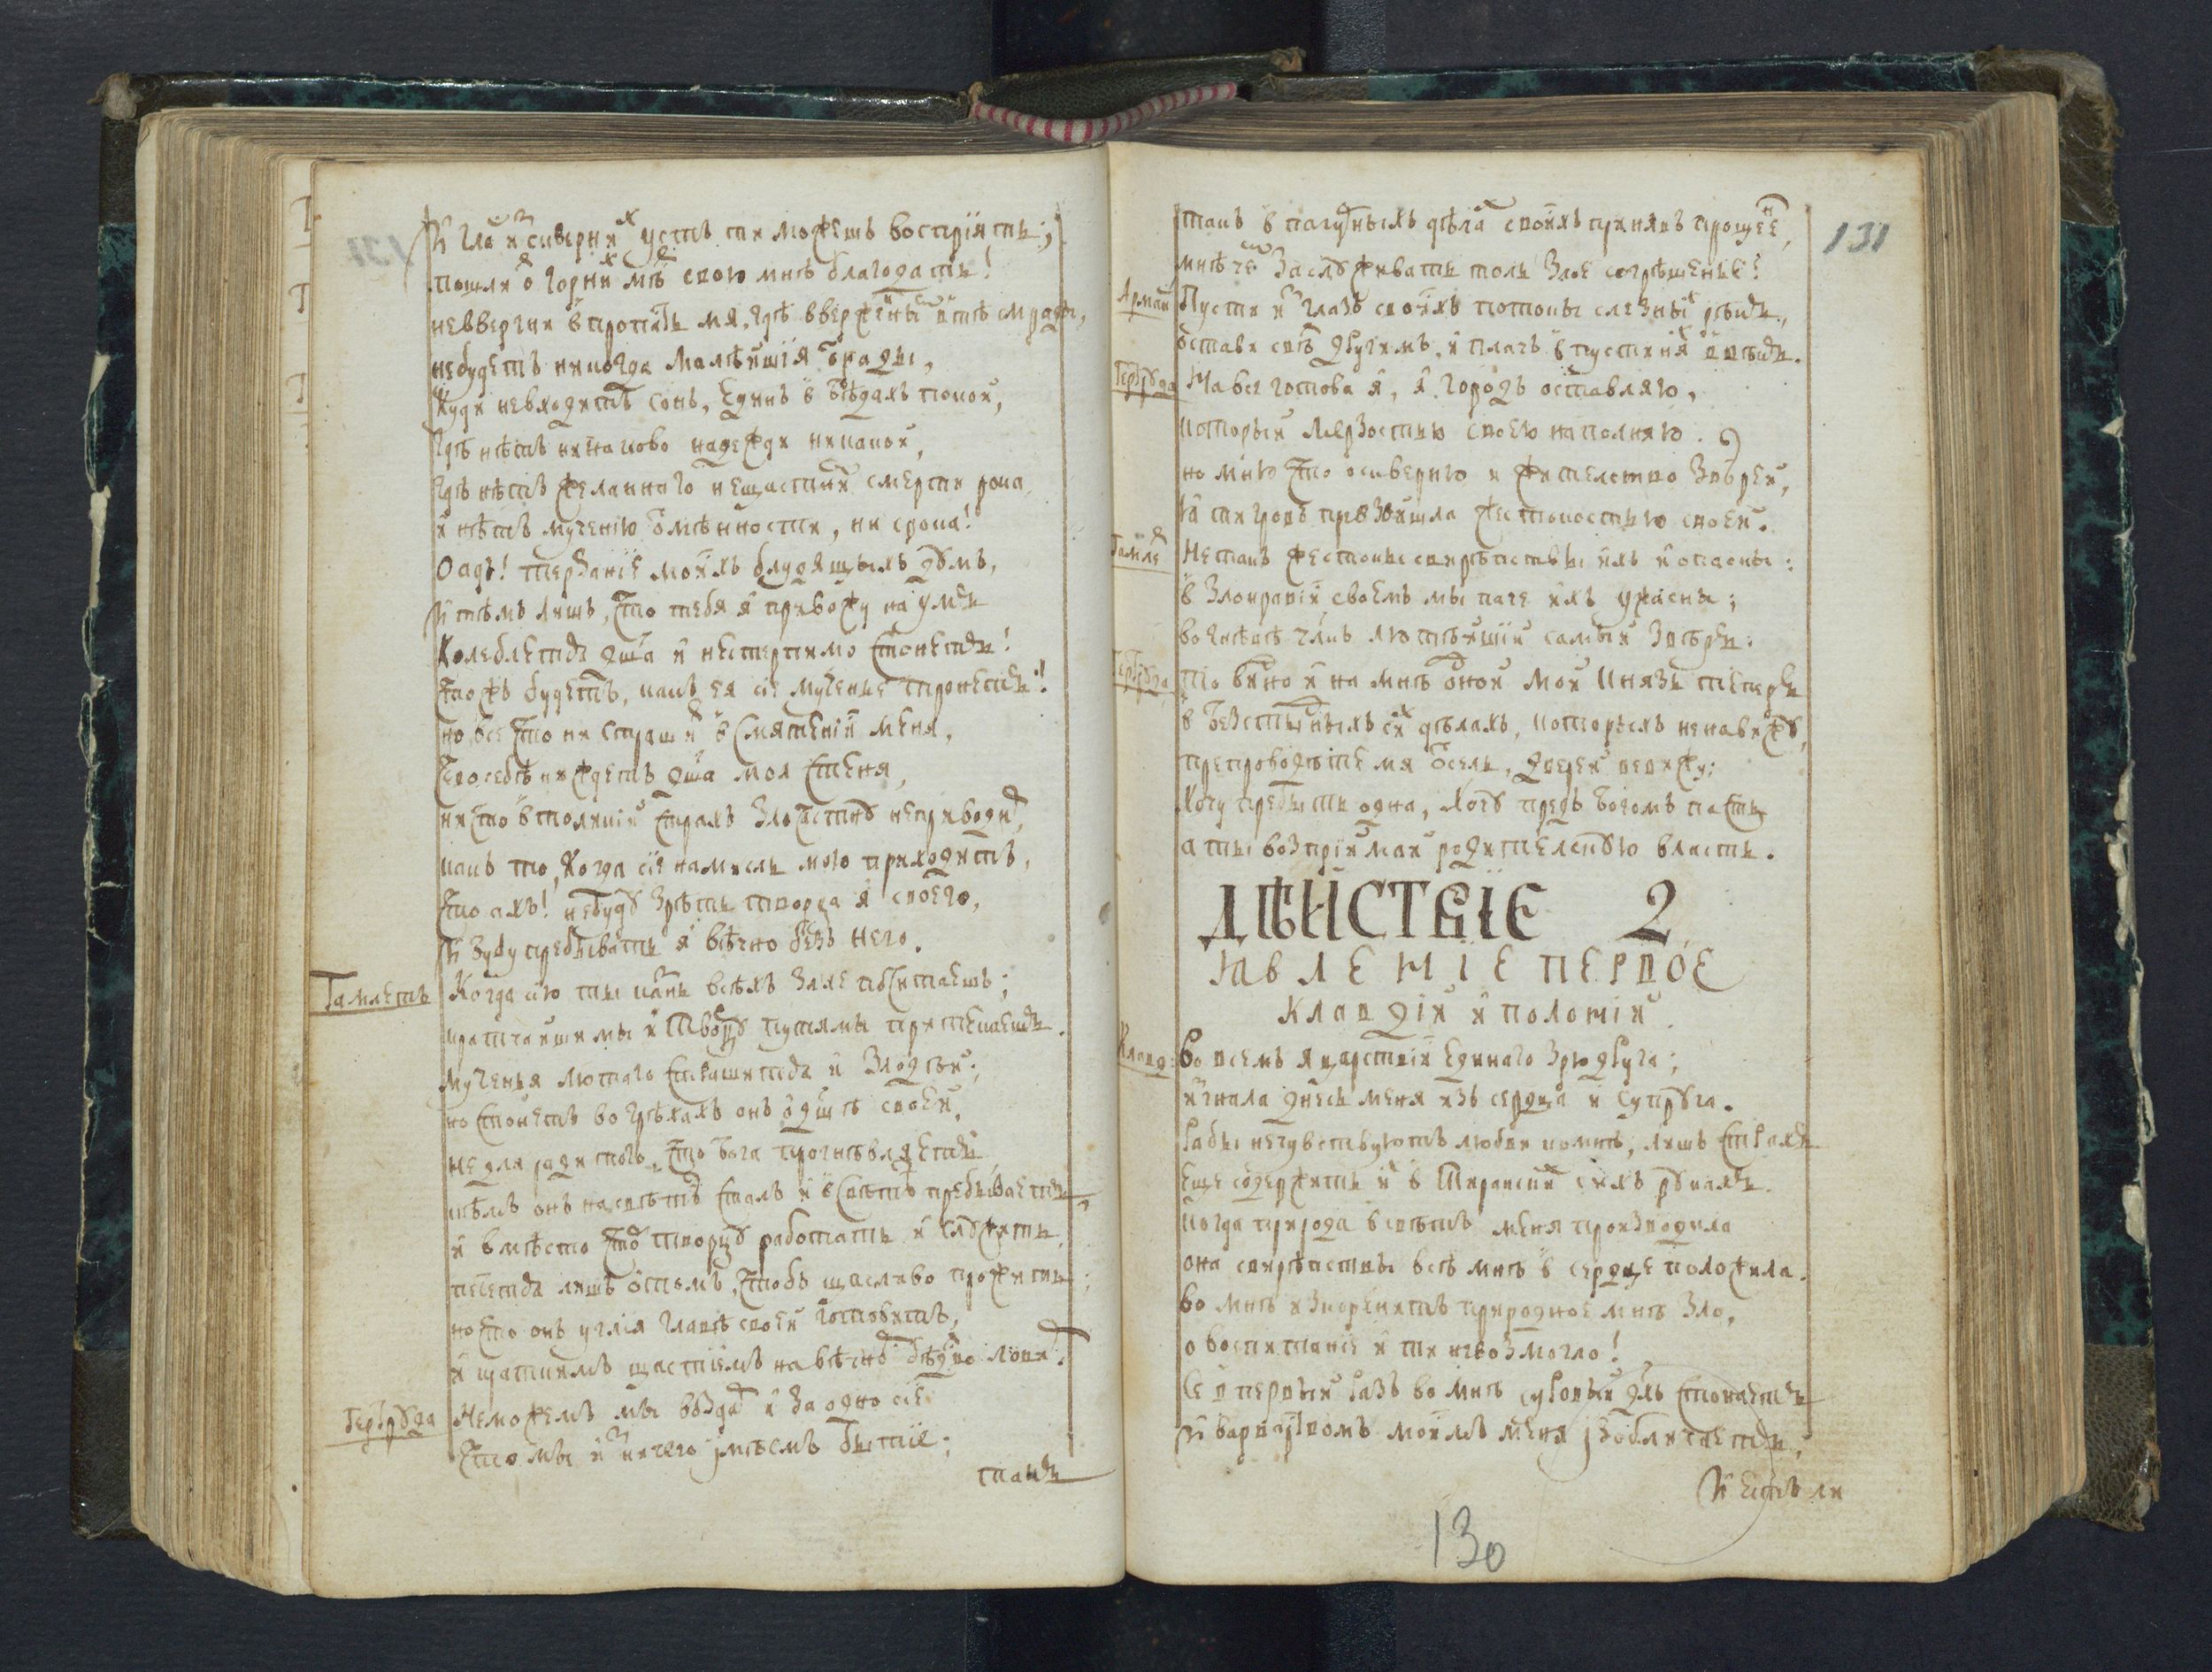 и гла изсквернихъ устъ ты можешъ воспріять;
пошли ѡ горнихъ мѣстъ свою мнѣ благодать!
невергни в пропасть мя, гдѣ
небудетъ никогда малѣйшія ѿрады,
Куда невходитъ сонъ, единъ в бѣдахъ покой,
гдѣ нѣтъ никаково надежди никакой,
гдѣ нѣтъ желаннаго нещастнымъ смерти рока
и нѣтъ мученію ѿмѣнности, ни срока!
О адъ! терзаніе моихъ блудящыхъ думъ,
и тѣмъ лишъ, что тебя я привожу на умъ
Колеблется дша и нестерпимо стонетъ!
что жъ будетъ, какъ ея сіе мученье тронетъ!
но все что ни страшитъ в смятеніи меня,
Чево себѣ ни ждетъ дша моя стеня,
ничто в толикій страхъ злочастну неприводитъ,
какъ то, когда сіе на мысль мою приходитъ,
что ахъ! небуду зрѣть творца я своего,
и буду пребывать я вѣчно безъ него.
Гамлетъ Когда сію ты казнь всѣхъ злѣе почитаешъ;
кратчайшими ктворцу путями притекаешъ.
мученья лютаго страшится и злодѣй;
но стонетъ во грѣхахъ онъ о дшѣ своей,
не для ради того, что Бога прогнѣвляетъ
тѣмъ онъ на свѣтѣ сталъ и в свѣтѣ пребываетъ
и вмѣсто чтобъ творцу работать и служить
печется лишъ о томъ, чтобъ щасливо прожить;
но что онъ углія главѣ своей готовитъ,
и краткимъ щастіемъ навѣчно бѣдство ловитъ.
Гертруда неможемъ мы воздать и за одно сіе
что мы изничего имѣемъ бытіе;
такъ
131
такъ в пагубныхъ дѣлахъ своихъ принявъ прощеніе,
мнѣ чемъ заслуживать толь злое согрѣшенье?
Арман Пусти изъ глазъ своихъ потоки слезныхъ рѣкъ,
остави свѣтъ другимъ, и плачъ в пустыняхъ в вѣкъ.
Гертруда На все готова я, я городъ оставляю,
который мерзостью своею наполняю.
но мню что оскверню и жителство звѣрей,
я тигровъ превзошла жестокостью своей.
Гамлетъ Не такъ жестоки свирѣпствы ихъ и опасны:
в злонравіи своемъ мы паче ихъ ужасны;
во гнѣвѣ члкъ лютѣйшій самый звѣрь:
Гертруда То видно и на мнѣ одной мой князь теперь
в безстыдныхъ сихъ дѣлахъ, которыхъ ненавижу,
препроводѣте мя ѿсель, дверей невижу;
Хочу пребыть одна, хочу предъ Богомъ пасть
а ты возпріимай родителскую власть.
ДѢЙСТВІЕ 2
ЯВЛЕНІЕ ПЕРВОЕ
клавдій и полоній.
Клавд: Во всемъ я царствіи единаго зрю друга;
изгнала днесь меня изъ сердца и супруга.
рабы нечувствуютъ любви ко мнѣ, лишъ страхъ
еще содержитъ ихъ в тиранскихъ сихъ рукахъ.
Когда природа в свѣтъ меня производила
она свирѣпствы всѣ мнѣ в сердце положила.
во мнѣ изкоренить природное мнѣ зло,
о воспитаніе и ты невозмогло!
Се в первый разъ во мнѣ суровый духъ стонаетъ
и варварствомъ моимъ меня изобличаетъ;
и естъ ли
130